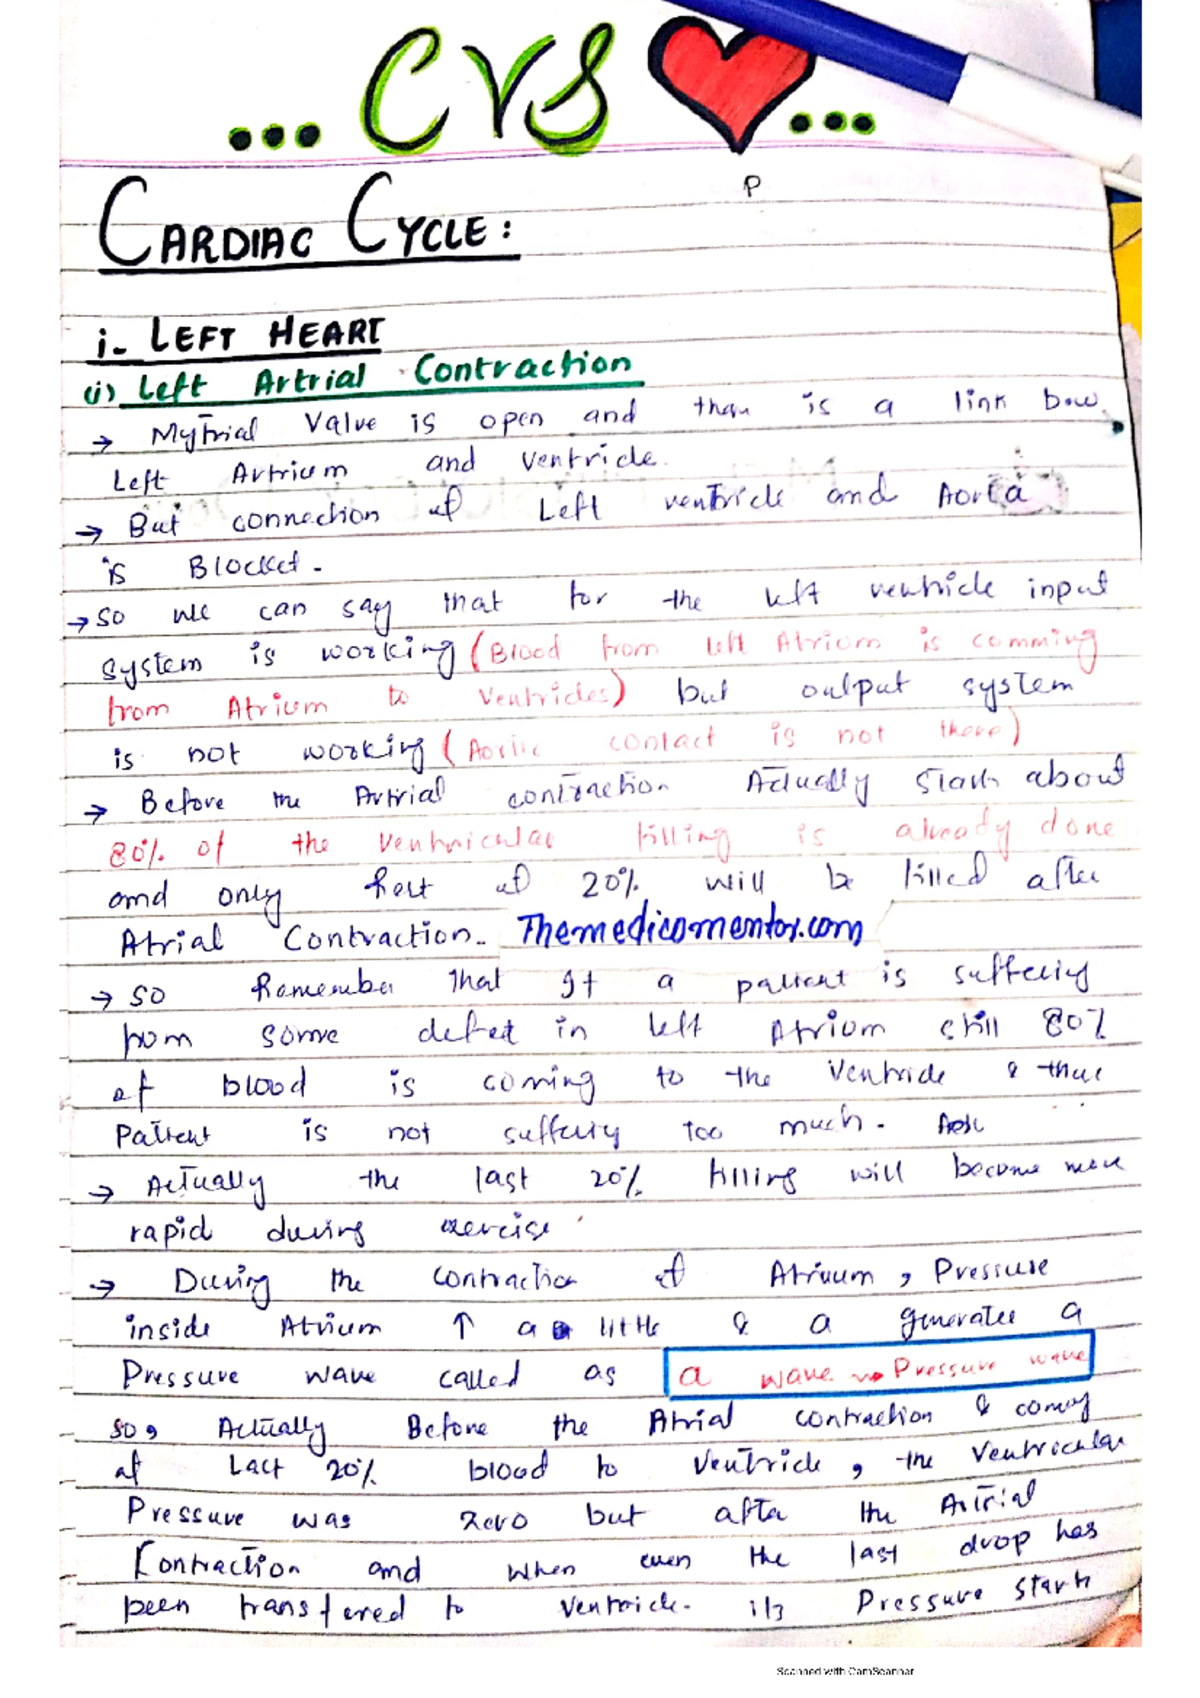 ... CVS ...
P
CARDIAC CYCLE:
i- LEFT HEART
(i) Left Artrial Contraction
→ Mytrial Valve is open and thus is a link bow.
Left Artrium and ventricle.
→ But connection of Left ventricle and Aorta
is Blocket.
→ so we can say that for the left ventricle input
system is working (Blood from left Atrium is comming
from Atrium to Ventricles) but output system
is not working (Aortic contact is not there)
→ Before the Artrial contraction Actually starts about
80% of the ventricular filling is already done
and only Rest of 20% will be filled after
Atrial Contraction. Themedicomentor.com
→ so Remember that If a patient is suffering
from some defect in left Atrium still 80%
of blood is coming to the Ventricle & that
Patient is not suffering too much.
→ Actually the last 20% filling will become more
rapid during exercise
→ During the contraction of Atrium, Pressure
inside Atrium ↑ a little & a generates a
Pressure wave called as a wave → Pressure wave
so, Actually Before the Atrial contraction & coming
of Last 20% blood to ventricle, the Ventricular
Pressure was zero but after the Artrial
Contraction and when even the last drop has
been transfered to ventricle. its Pressure starts
Scanned with CamScanner